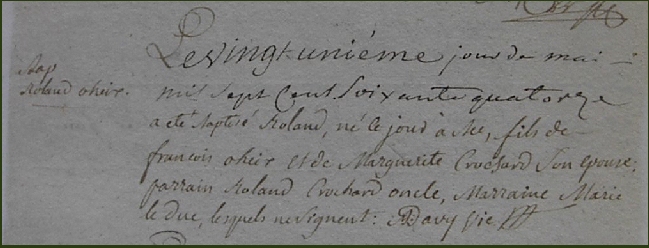 Bap
Roland oheix.
Le vingt unième jour de mai
mil Sept Cent Soixante quatorze
a eté baptisé Roland, né le jour à hier, fils de
francois oheix et de Marguerite Crochard Son epouse,
parrain Roland Crochard oncle, Marraine Marie
le Duc, lesquels ne Signent.